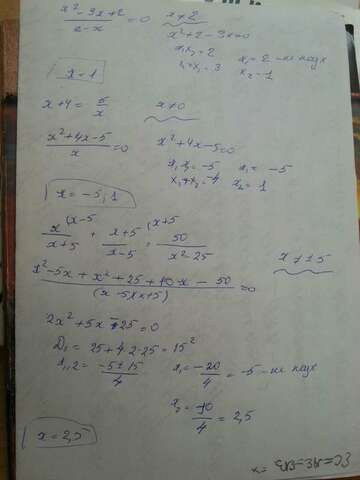 x²-3x+2 / 2-x = 0    x≠2
x²+2-3x=0
x₁x₂=2    x₁=2 - не подх
x₁+x₂=3    x₂=1
x=1
x+4 = 5/x    x≠0
x²+4x-5 / x = 0    x²+4x-5=0
x₁x₂=-5    x₁=-5
x₁+x₂=-4    x₂=1
x=-5; 1
x (x-5 / x+5 + x+5 (x+5 / x-5 = 50 / x²-25    x≠±5
x²-5x+x²+25+10x-50 / (x-5)(x+5) = 0
2x²+5x-25=0
D₁=25+4·2·25=15²
x₁,₂ = -5±15 / 4    x₁ = -20/4 = -5 - не подх
x₂ = 10/4 = 2,5
x=2,5